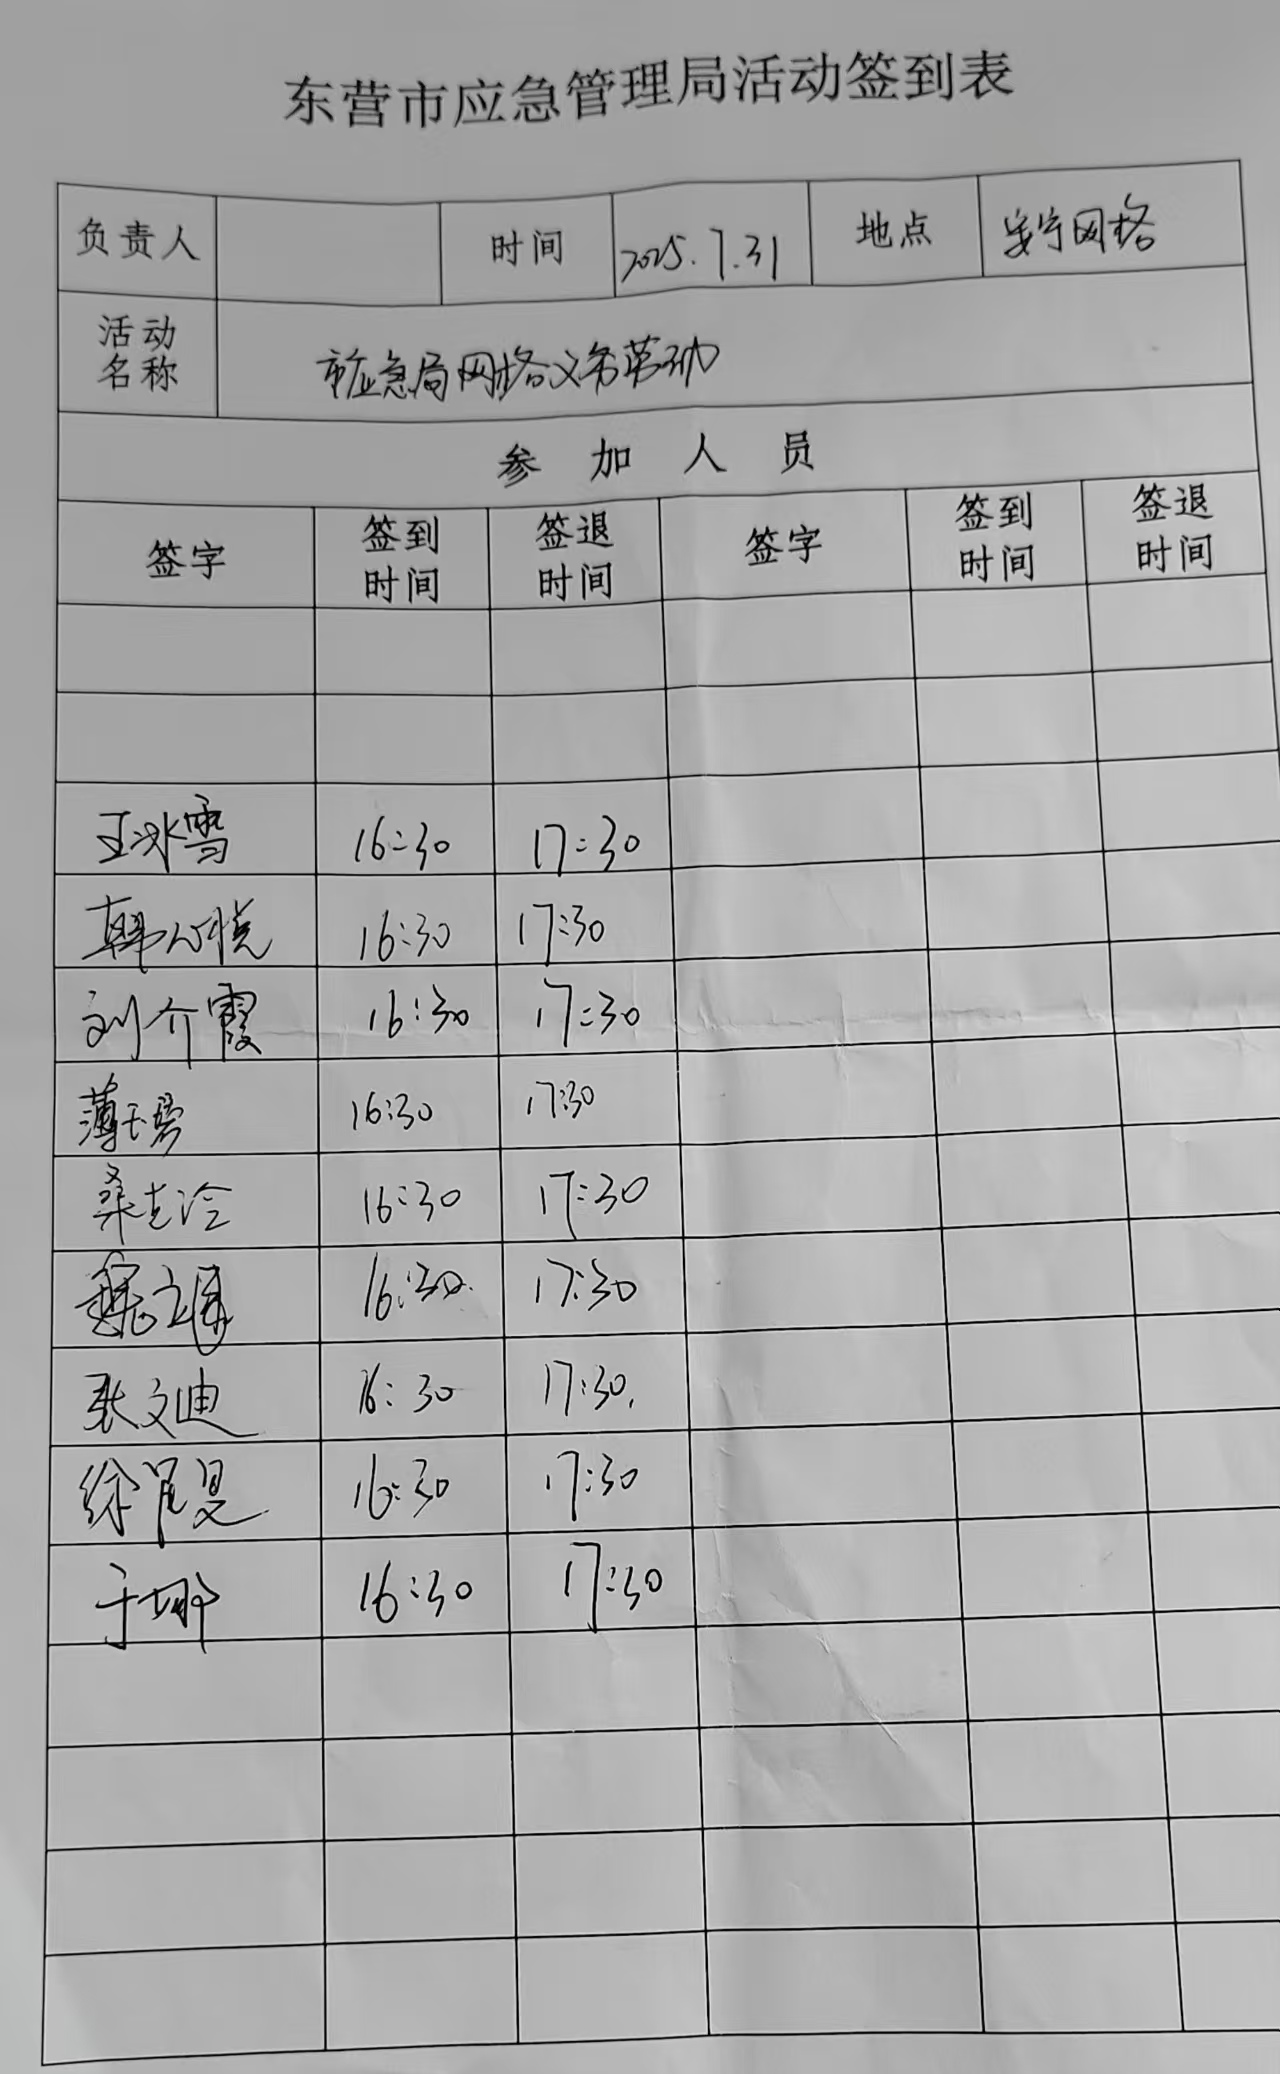 东营市应急管理局活动签到表
负责人 时间 2025.7.31 地点 安宁网格
活动名称 市应急局网格义务劳动
参加人员
签字 签到时间 签退时间 签字 签到时间 签退时间
王冰雪 16:30 17:30
韩心悦 16:30 17:30
刘介霞 16:30 17:30
薄玉 16:30 17:30
桑志冷 16:30 17:30
魏 16:30 17:30
张文迪 16:30 17:30
徐 16:30 17:30
于娜 16:30 17:30